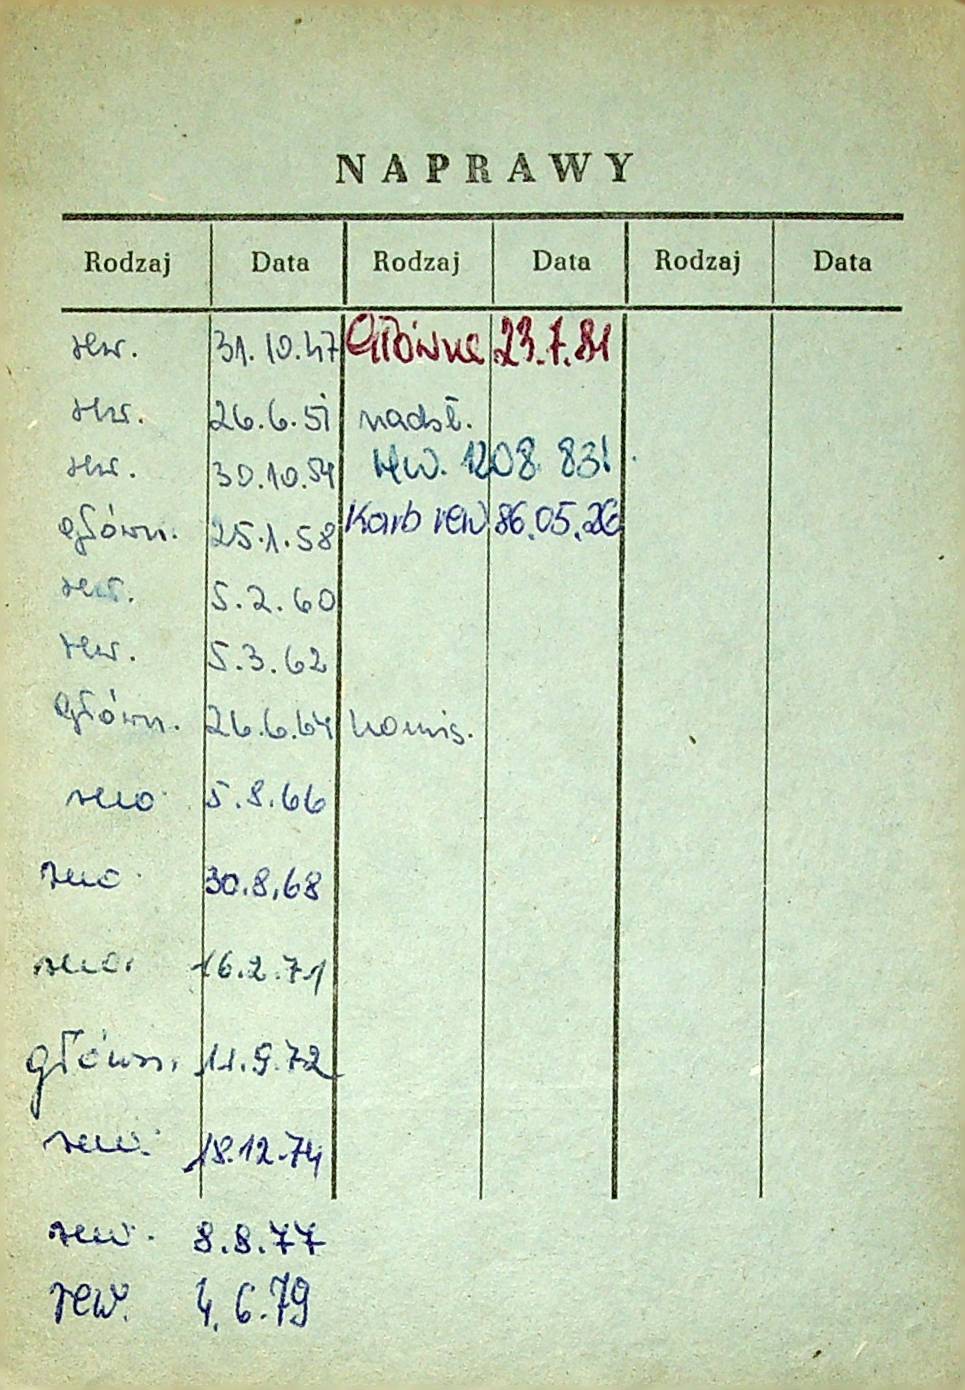 NAPRAWY
Rodzaj Data Rodzaj Data Rodzaj Data
rew. 31.10.47 Główna 23.7.81
rew. 26.6.51 nadst.
rew. 30.10.54 rew. 1208 831
główn. 25.1.58 Karb rew 86.05.26
rew. 5.2.60
rew. 5.3.62
główn. 26.6.64 komis.
rew. 5.8.66
rew. 30.8.68
rew. 16.2.71
główn. 11.9.72
rew. 18.12.74
rew. 8.8.77
rew. 4.6.79